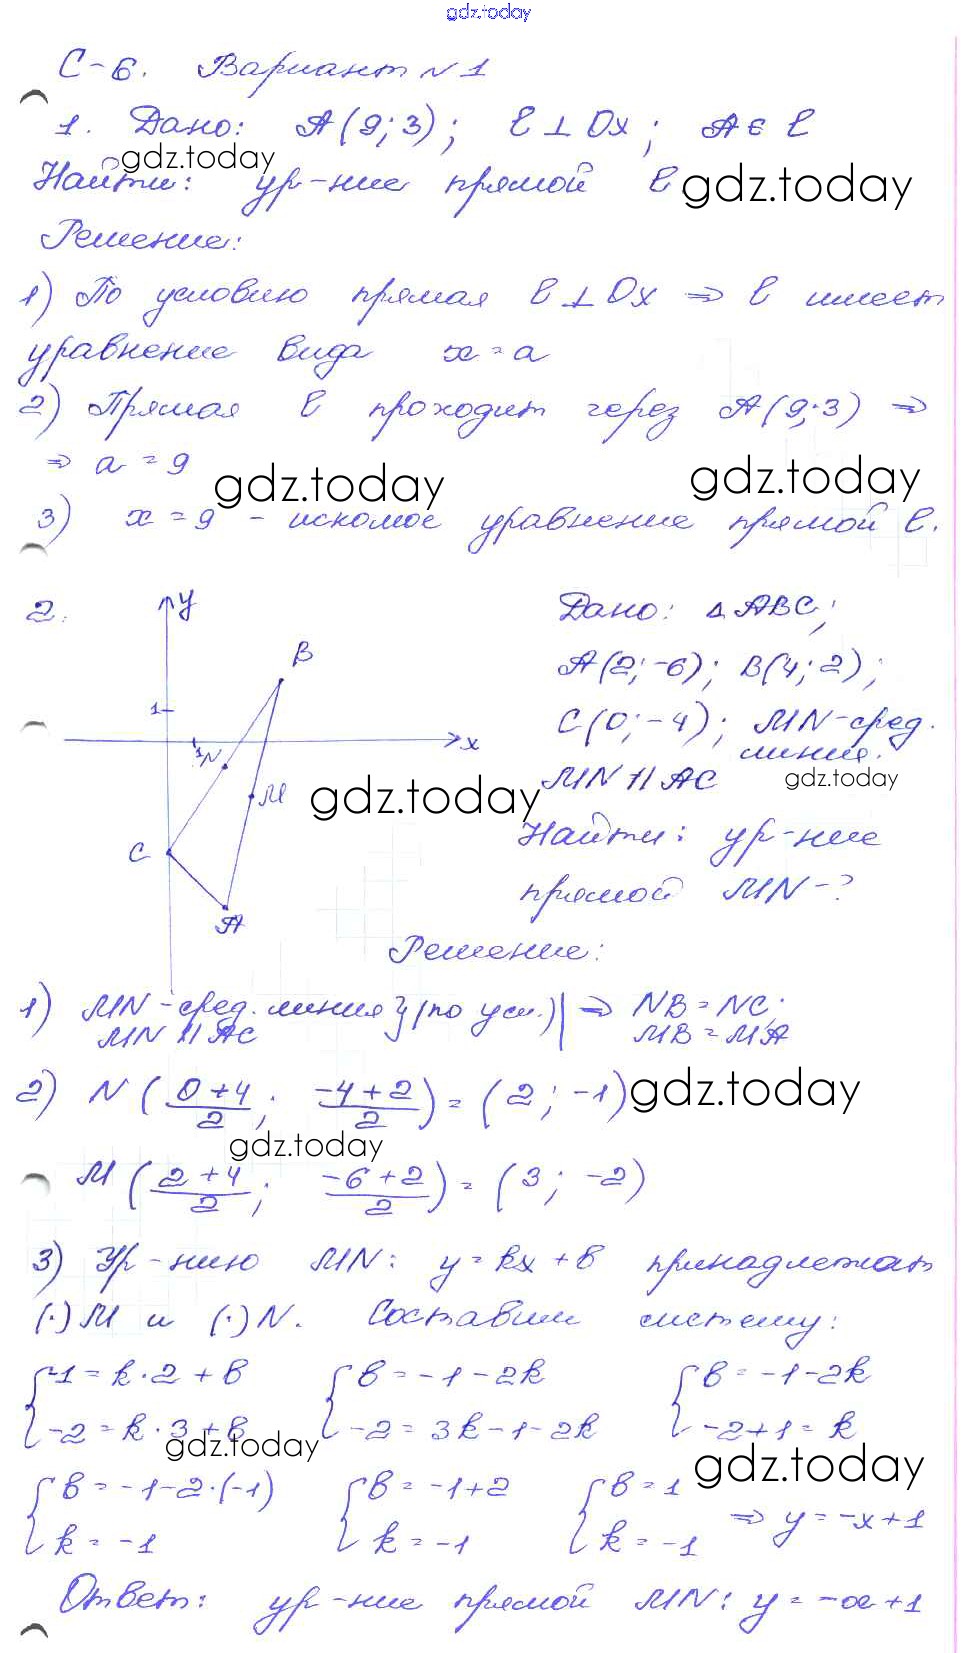 gdz.today
С-6. Вариант №1
1. Дано: A(9;3); l⊥Ox; A∈l
gdz.today
Найти: ур-ние прямой l. gdz.today
Решение:
1) По условию прямая l⊥Ox ⇒ l имеет
уравнение вида x=a
2) Прямая l проходит через A(9;3) ⇒
⇒ a=9
gdz.today gdz.today
3) x=9 - искомое уравнение прямой l.
2.
y
B
1
x
1
N
M
C
A
Дано: ΔABC;
A(2;-6); B(4;2);
C(0;-4); MN-сред.
линия.
MN || AC gdz.today
gdz.today
Найти: ур-ние
прямой MN-?
Решение:
1) MN-сред. линия} (по усл.)| ⇒ NB=NC;
MN || AC MB=MA
2) N((0+4)/2; (-4+2)/2) = (2; -1) gdz.today
gdz.today
M((2+4)/2; (-6+2)/2) = (3; -2)
3) Ур-нию MN: y=kx+b принадлежат
(·)M и (·)N. Составим систему:
{-1=k·2+b {b=-1-2k {b=-1-2k
{-2=k·3+b {-2=3k-1-2k {-2+1=k
gdz.today gdz.today
{b=-1-2·(-1) {b=-1+2 {b=1
{k=-1 {k=-1 {k=-1 ⇒ y=-x+1
Ответ: ур-ние прямой MN: y=-x+1